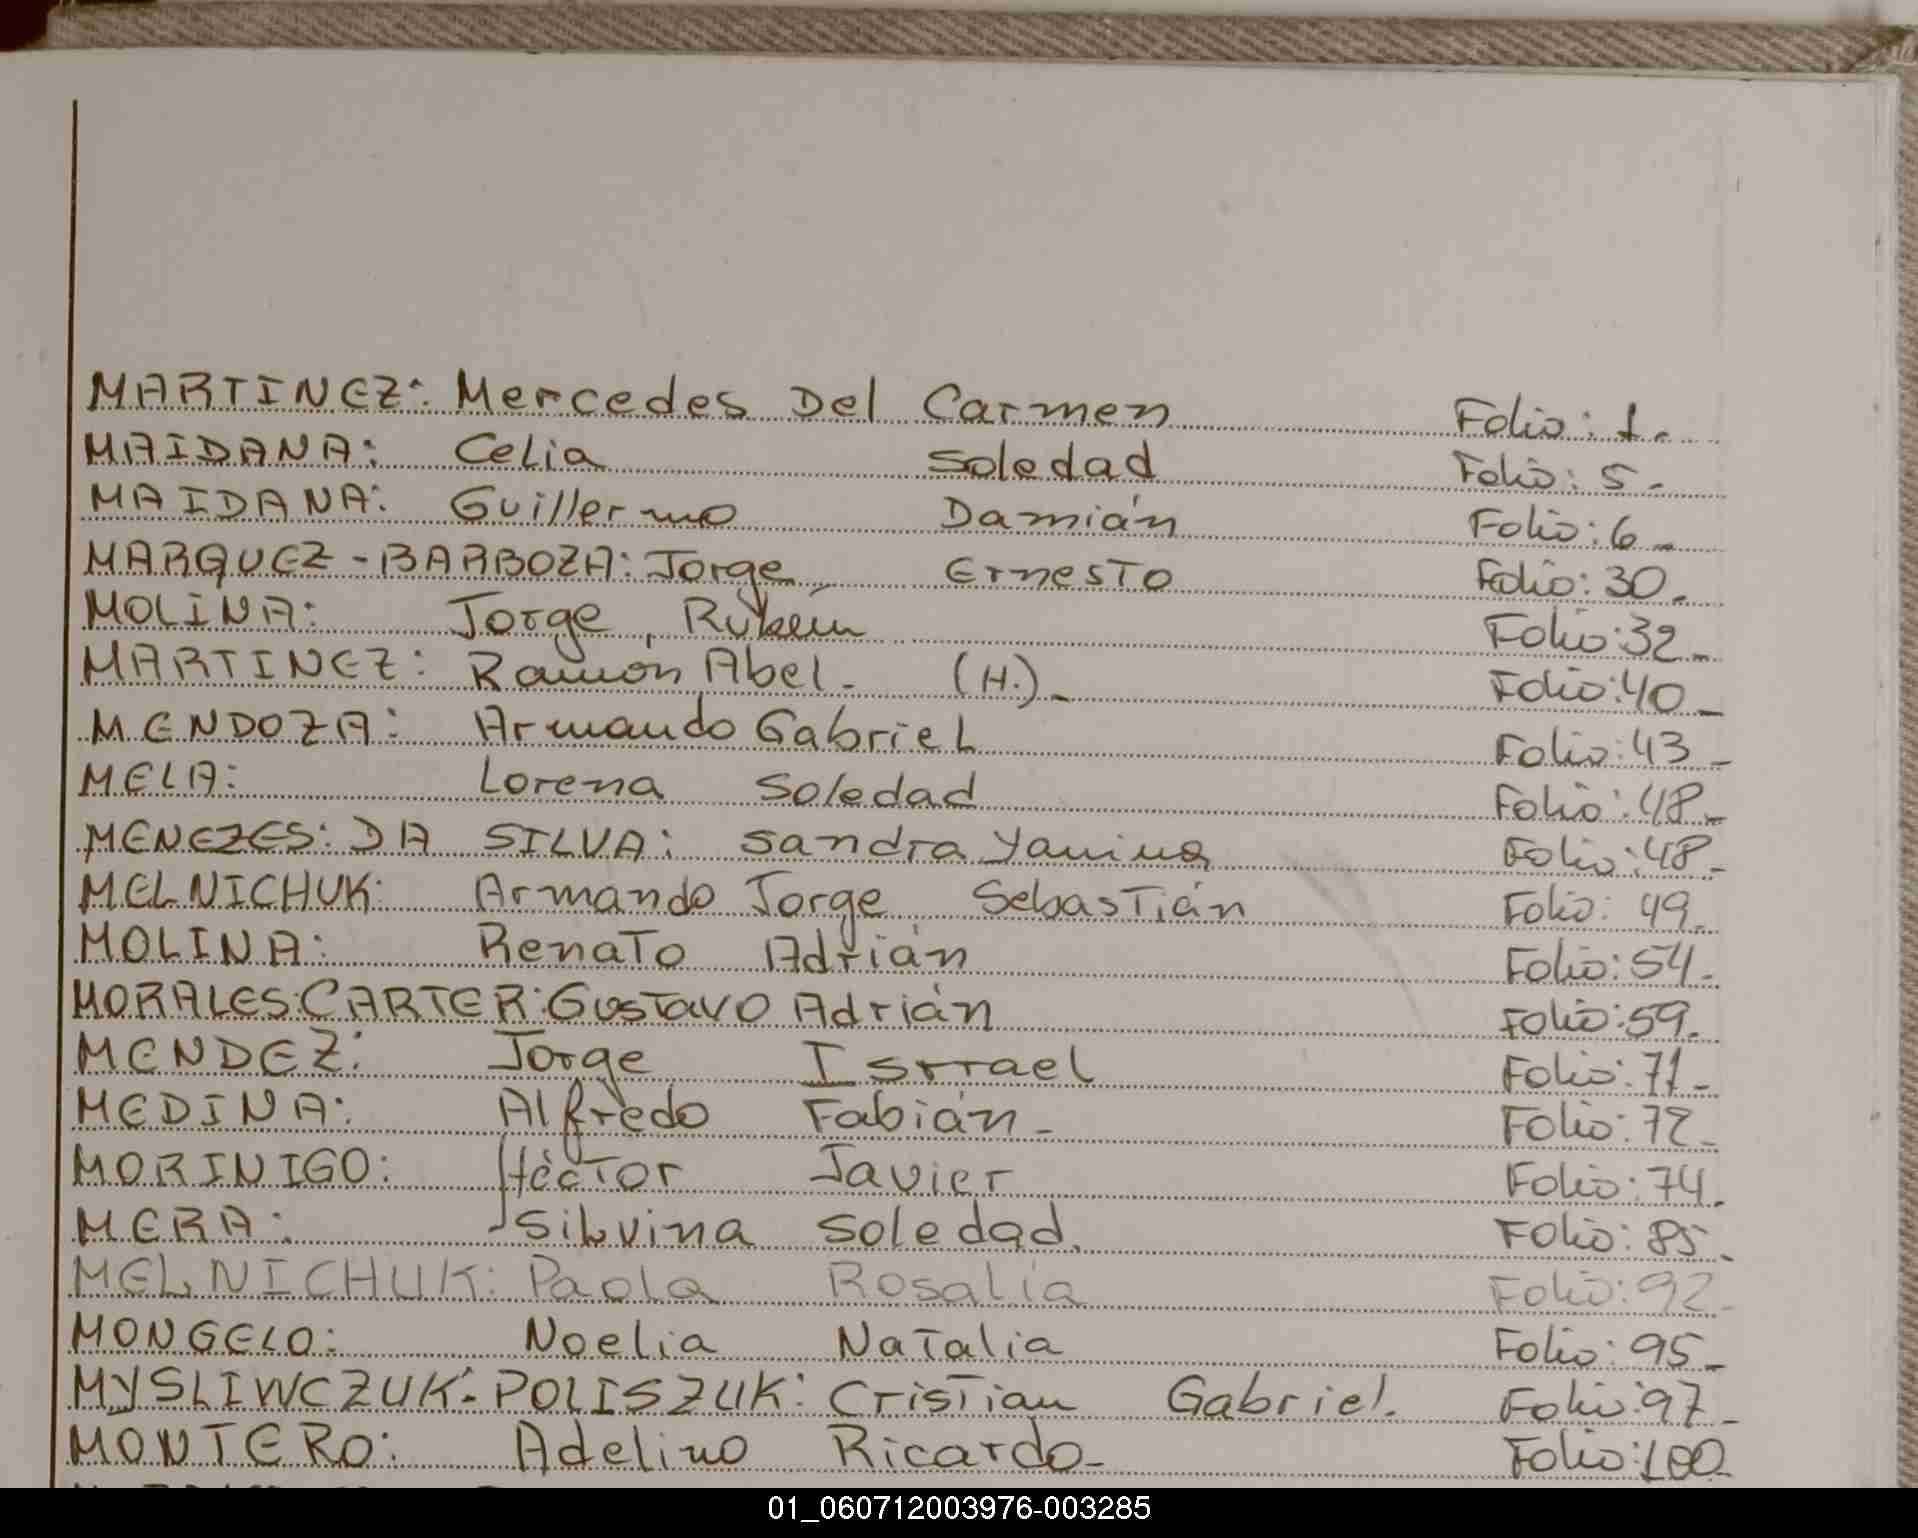 MARTINEZ: Mercedes Del Carmen Folio: 1.
MAIDANA: Celia Soledad Folio: 5.
MAIDANA: Guillermo Damián Folio: 6.
MARQUEZ-BARBOZA: Jorge Ernesto Folio: 30.
MOLINA: Jorge, Rubén Folio: 32.
MARTINEZ: Ramón Abel. (H.). Folio: 40.
MENDOZA: Armando Gabriel Folio: 43.
MELA: Lorena Soledad Folio: 48.
MENEZES: DA SILVA: Sandra Yanina Folio: 48.
MELNICHUK: Armando Jorge Sebastián Folio: 49.
MOLINA: Renato Adrián Folio: 54.
MORALES: CARTER: Gustavo Adrián Folio: 59.
MENDEZ: Jorge Isrrael Folio: 71.
MEDINA: Alfredo Fabián. Folio: 72.
MORINIGO: Héctor Javier Folio: 74.
MERA: Silvina Soledad. Folio: 85.
MELNICHUK: Paola Rosalía Folio: 92.
MONGELO: Noelia Natalia Folio: 95.
MYSLIWCZUK-POLISZUK: Cristian Gabriel. Folio: 97.
MONTERO: Adelino Ricardo. Folio: 100.
01_060712003976-003285